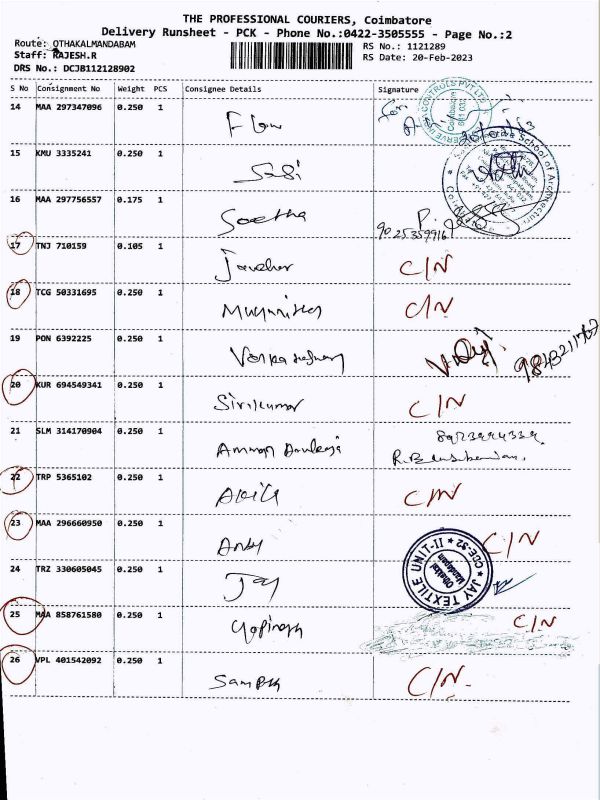 THE PROFESSIONAL COURIERS, Coimbatore
Delivery Runsheet - PCK - Phone No.:0422-3505555 - Page No.:2
Route: OTHAKALMANDABAM
Staff: RAJESH.R
DRS No.: DCJB112128902
RS No.: 1121289
RS Date: 20-Feb-2023
S No Consignment No Weight PCS Consignee Details Signature
14 MAA 297347096 0.250 1 Flow
15 KMU 3335241 0.250 1 Sasi
16 MAA 297756557 0.175 1 Seetha
9025359916
17 TNJ 710159 0.105 1 C/N
18 TCG 50331695 0.250 1 C/N
19 PON 6392225 0.250 1
9843211767
20 KUR 694549341 0.250 1 Sirilkumar C/N
21 SLM 314170904 0.250 1 Amman
22 TRP 5365102 0.250 1 Akila C/N
23 MAA 296660950 0.250 1 C/N
24 TRZ 330605045 0.250 1 Jay
JAY TEXTILE UNIT-II
25 MAA 858761580 0.250 1 Gopinath C/N
26 VPL 401542092 0.250 1 C/N